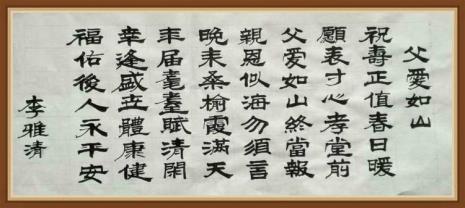 父愛如山
祝壽正值春日暖
願表寸心孝堂前
父爱如山終當報
親恩似海勿須言
晚来桑榆霞滿天
年届耄耋賦清閑
幸逢盛世體康健
福佑後人永平安
李雅清